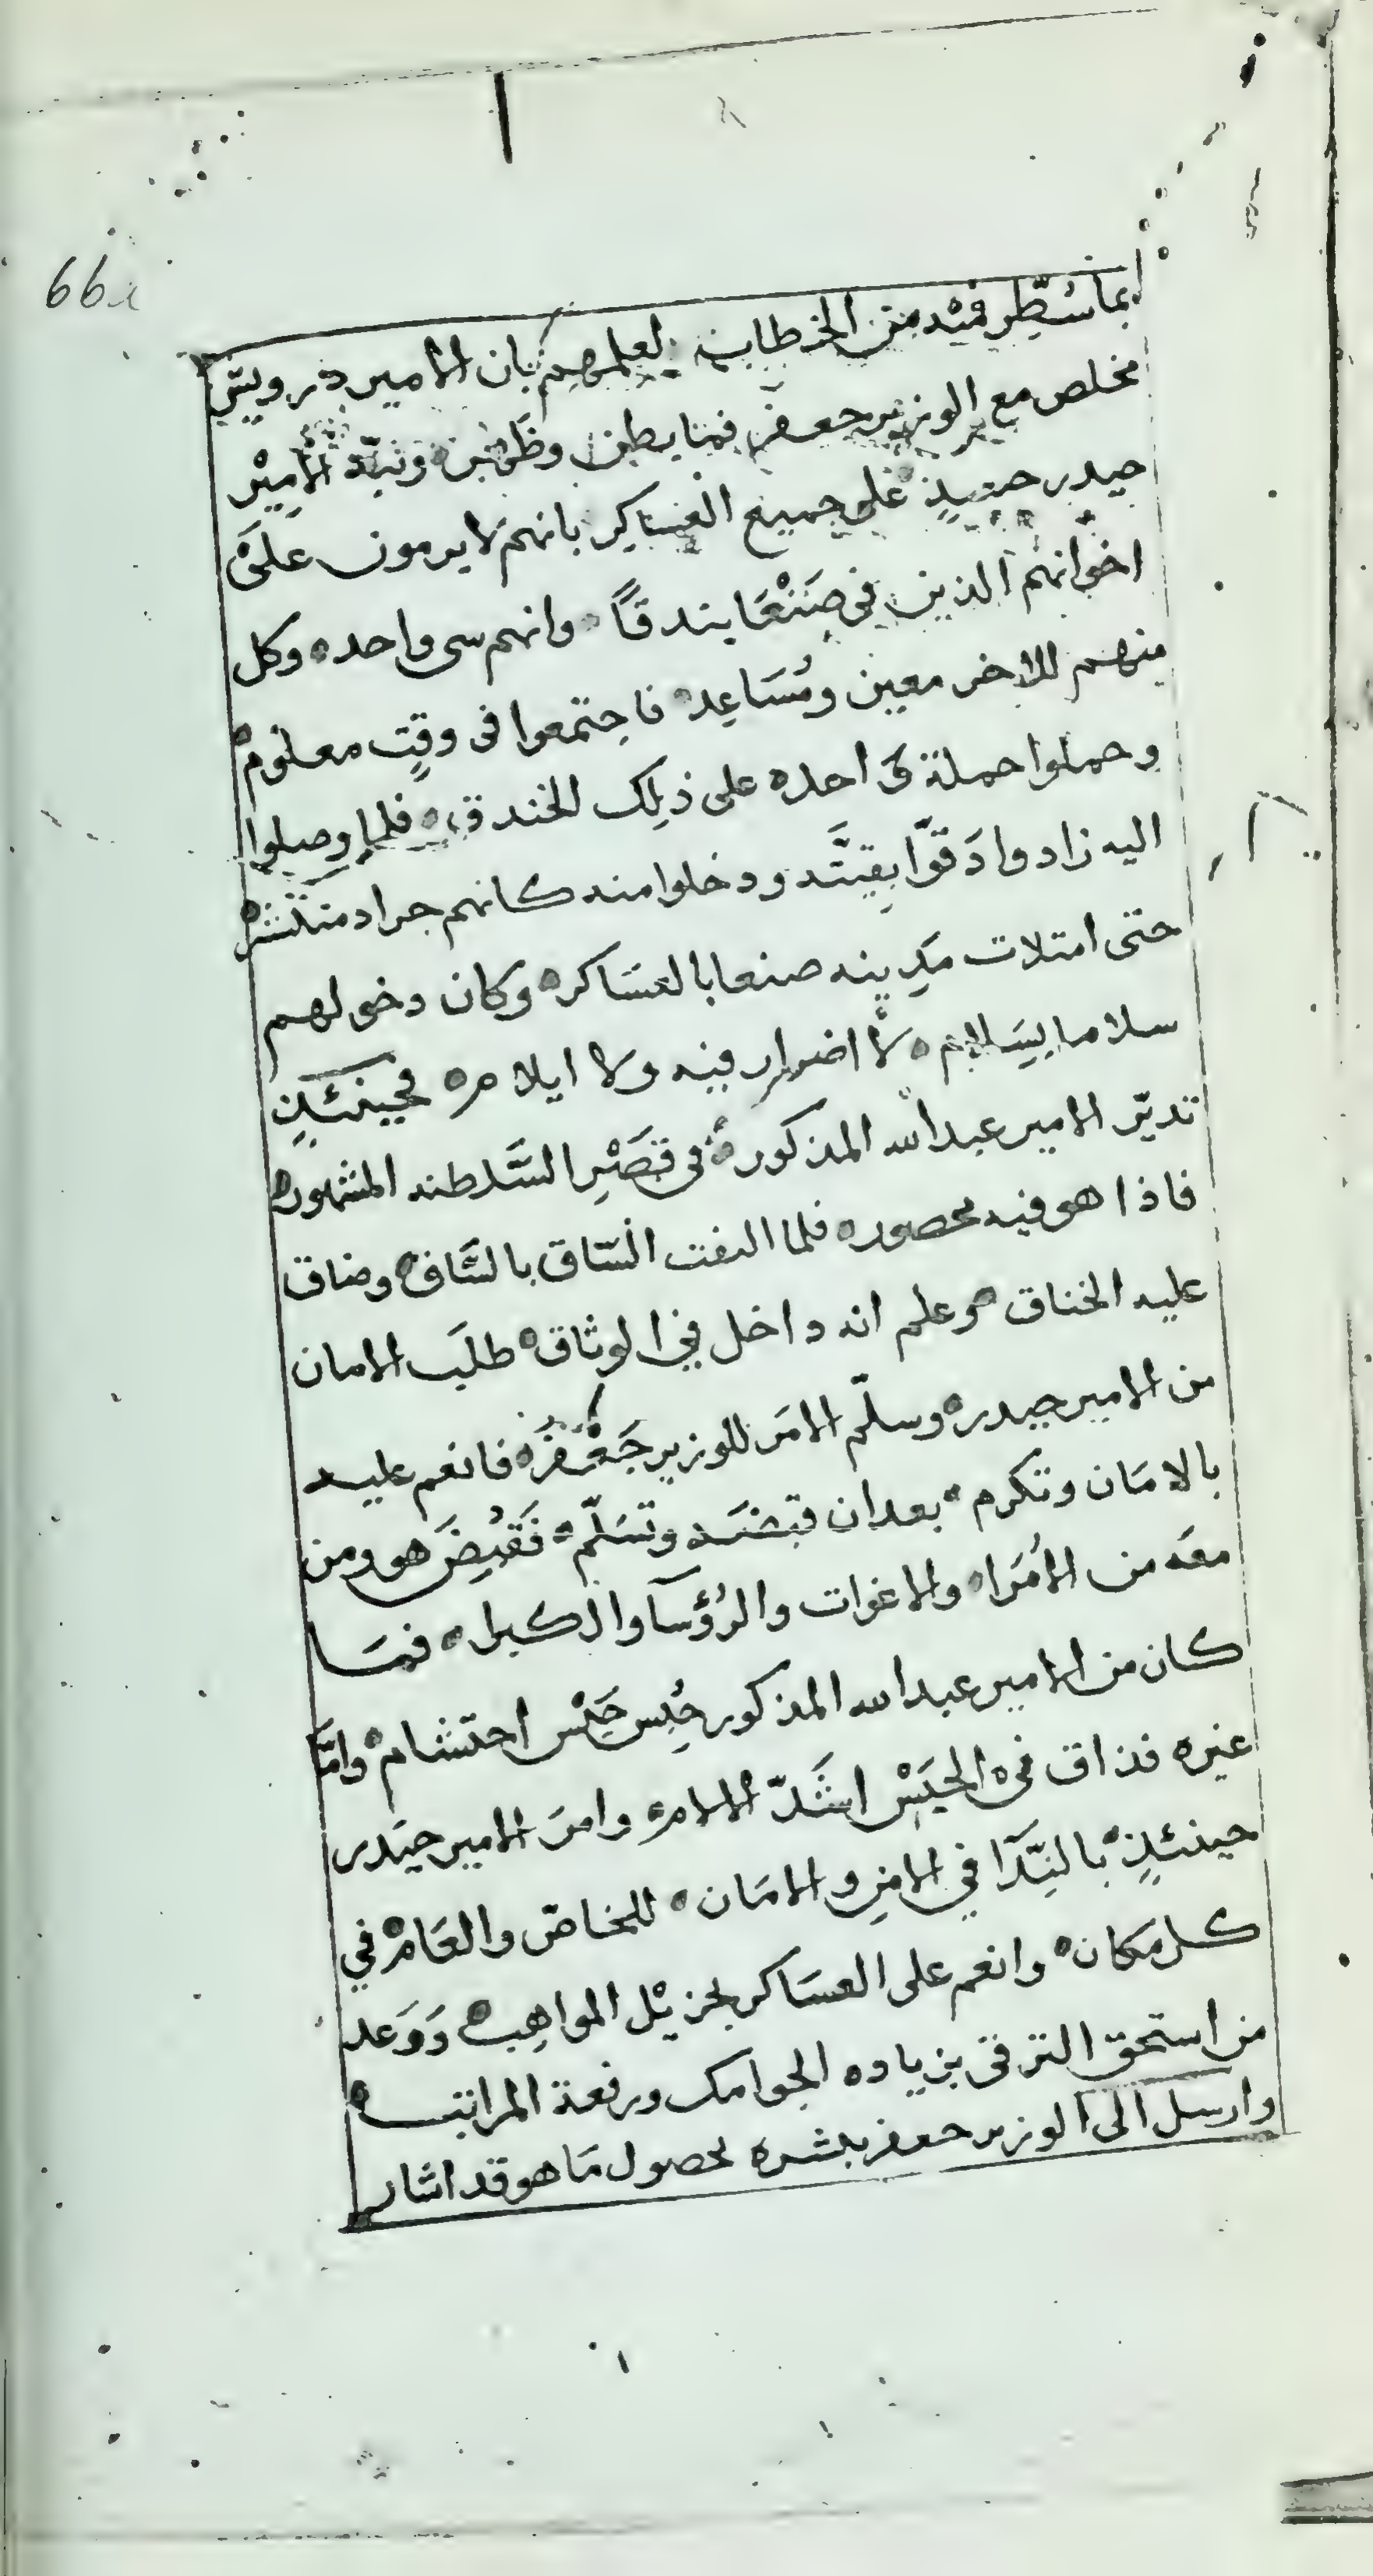 66
بما سُطِّر فيْه من الخطاب لعلمهم بان الامير درويش
مخلص مع الوزير جعفر فيما بطن وظهر ونبّه الاميْر
حيدر حينيذٍ على جميع العساكر بانهم لا يرمون على
اخوانهم الذين في صَنْعَا بندقًا وانهم سى واحد وكل
منهم للاخر معين ومُسَاعِد فاجتمعوا فى وقتٍ معلوم
وحملوا حملة واحده على ذلك الخندق فلما وصلوا
اليه زادوا دَقّوا بقيتَه ودخلوا منه كانهم جراد منتشر
حتى امتلات مَدِينه صنعا بالعسَاكر وكان دخولهم
سلاما بِسَلام لا اضرار فيه ولا ايلام فحينئذٍ
تديّر الامير عبدالله المذكور فى قصْرِ السَّلطنه المشهور
فاذا هو فيه محصور فلما التفت السّاق بالسَّاق وضاق
عليه الخناق وعلم انه داخل في الوثاق طلَب الامان
من الامير حيدر وسلّم الامَر للوزير جَعْفَر فانعم عليه
بالامَان وتكرم بعد ان قبضَه وتسَلّم فَقُبِضَ هو ومن
معَه من الاُمَرا والاغوات والرُؤسَآ والكبرا فمَا
كان من الامير عبدالله المذكور حُبِس حَبْس احتشام وامَّا
غيره فذاق فى الحَبْس اشَدّ الالام وامَر الامير حيَدر
حينئذٍ بالنِّدَآ في الامنِ والامَان للخاصّ والعَام في
كل مَكان وانعم على العسَاكر بجزيْل المواهِب وَوَعد
من استحق الترقى بزياده الجوامك ورفعة المراتب
وارسل الى الوزير جعفر يبشره بحصول مَا هو قد اشار